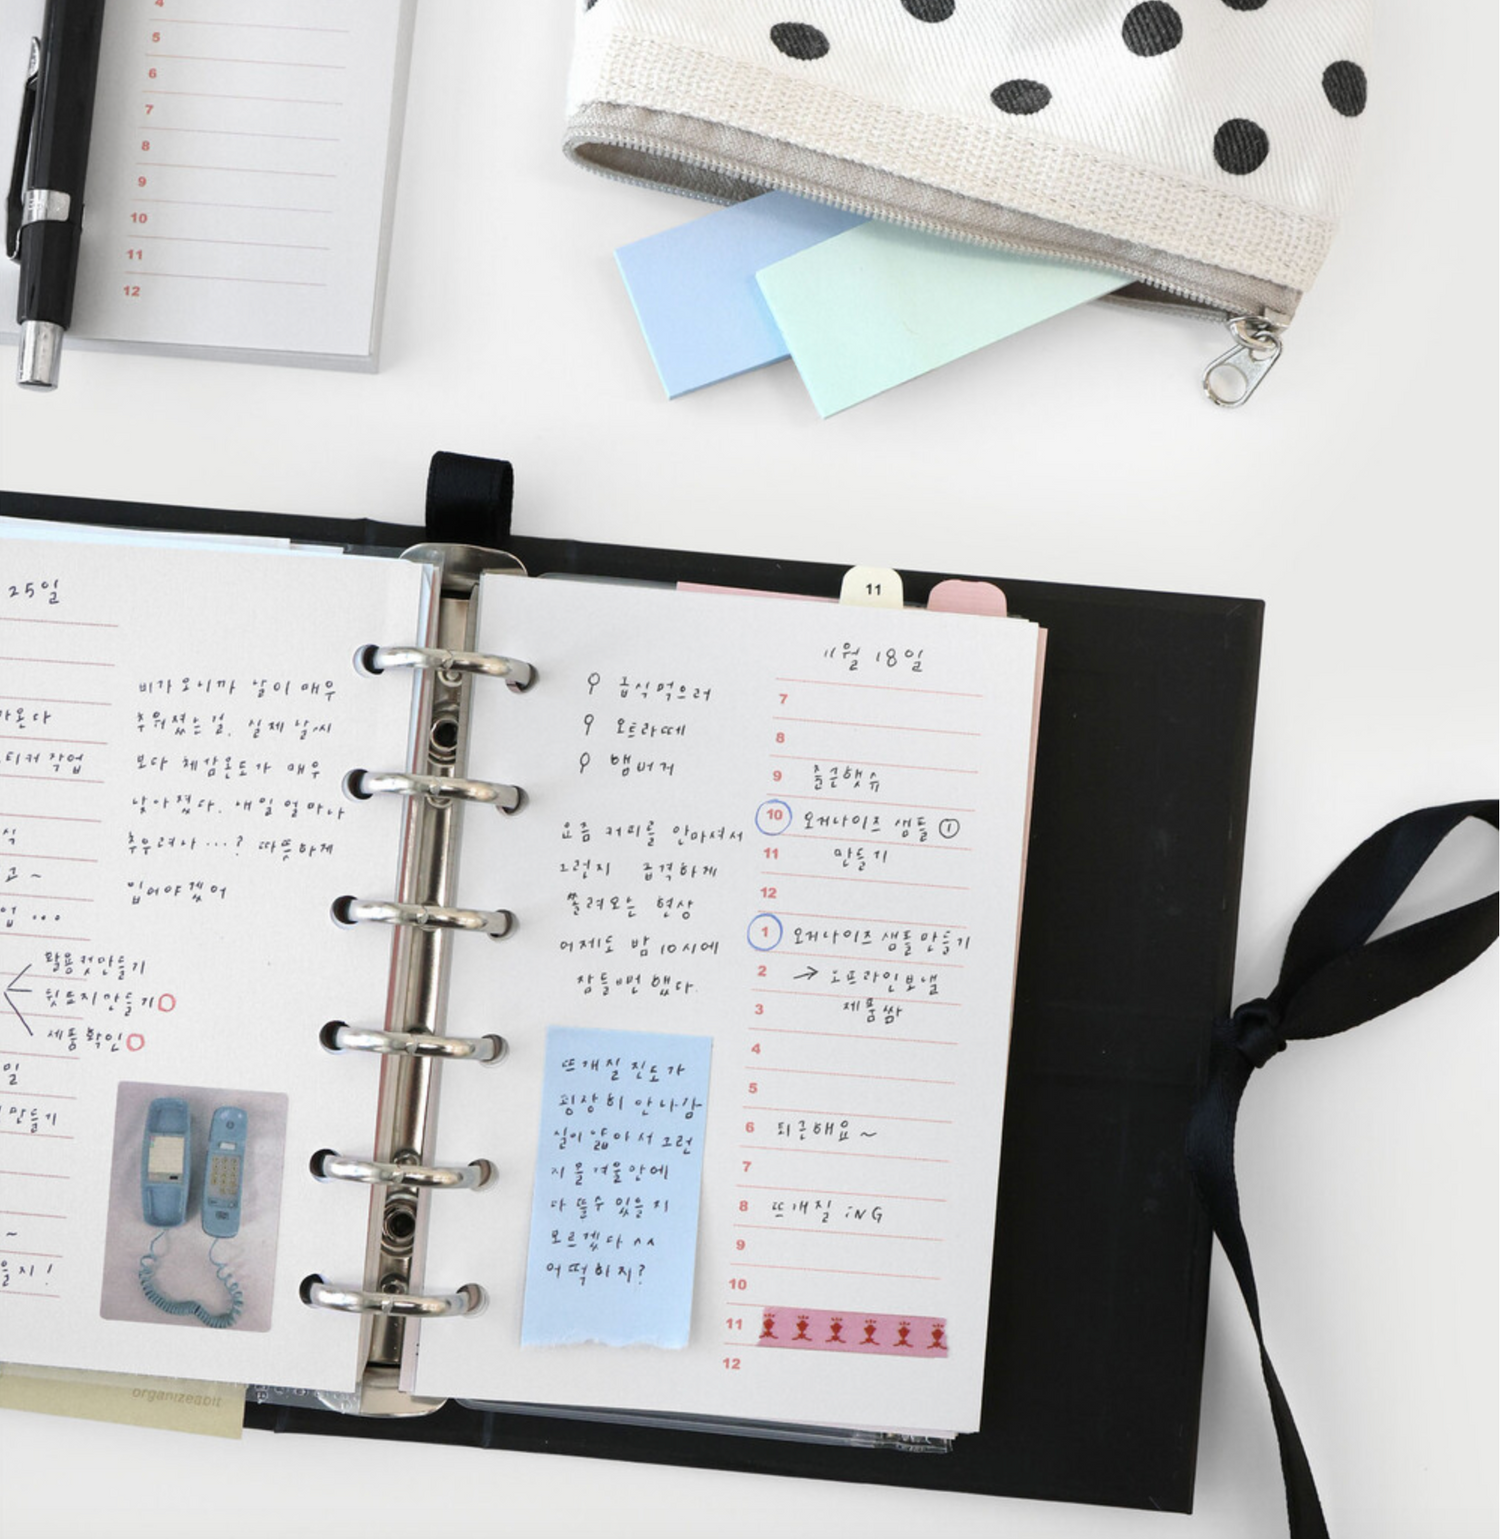 4
5
6
7
8
9
10
11
12
25일
비가 오니까 날이 매우
추워졌는걸. 실제 날씨
보다 체감온도가 매우
낮아졌다. 내일 얼마나
추우려나 ...? 따뜻하게
입어야겠어
가온다
티커 작업
식
고 ~
업 ...
활용컷만들기
뒷대지만들기
제품확인
일
만들기
~
을지!
organizeabit
11
11월 18일
급식먹으러
오트라떼
햄버거
요즘 커피를 안마셔서
그런지 급격하게
쏠려오는 현상
어제도 밤 10시에
잠들뻔 했다.
뜨개질 진도가
굉장히 안나감
실이 얇아서 그런
지 올겨울안에
다 뜰수 있을지
모르겠다 ^^
어떡하지?
7
8
9 출근햇슈
10 오거나이즈 샘플 ①
11 만들기
12
1 오거나이즈 샘플 만들기
2 → 오프라인보낼
3 제품쌈
4
5
6 퇴근해요~
7
8 뜨개질 iNG
9
10
11
12